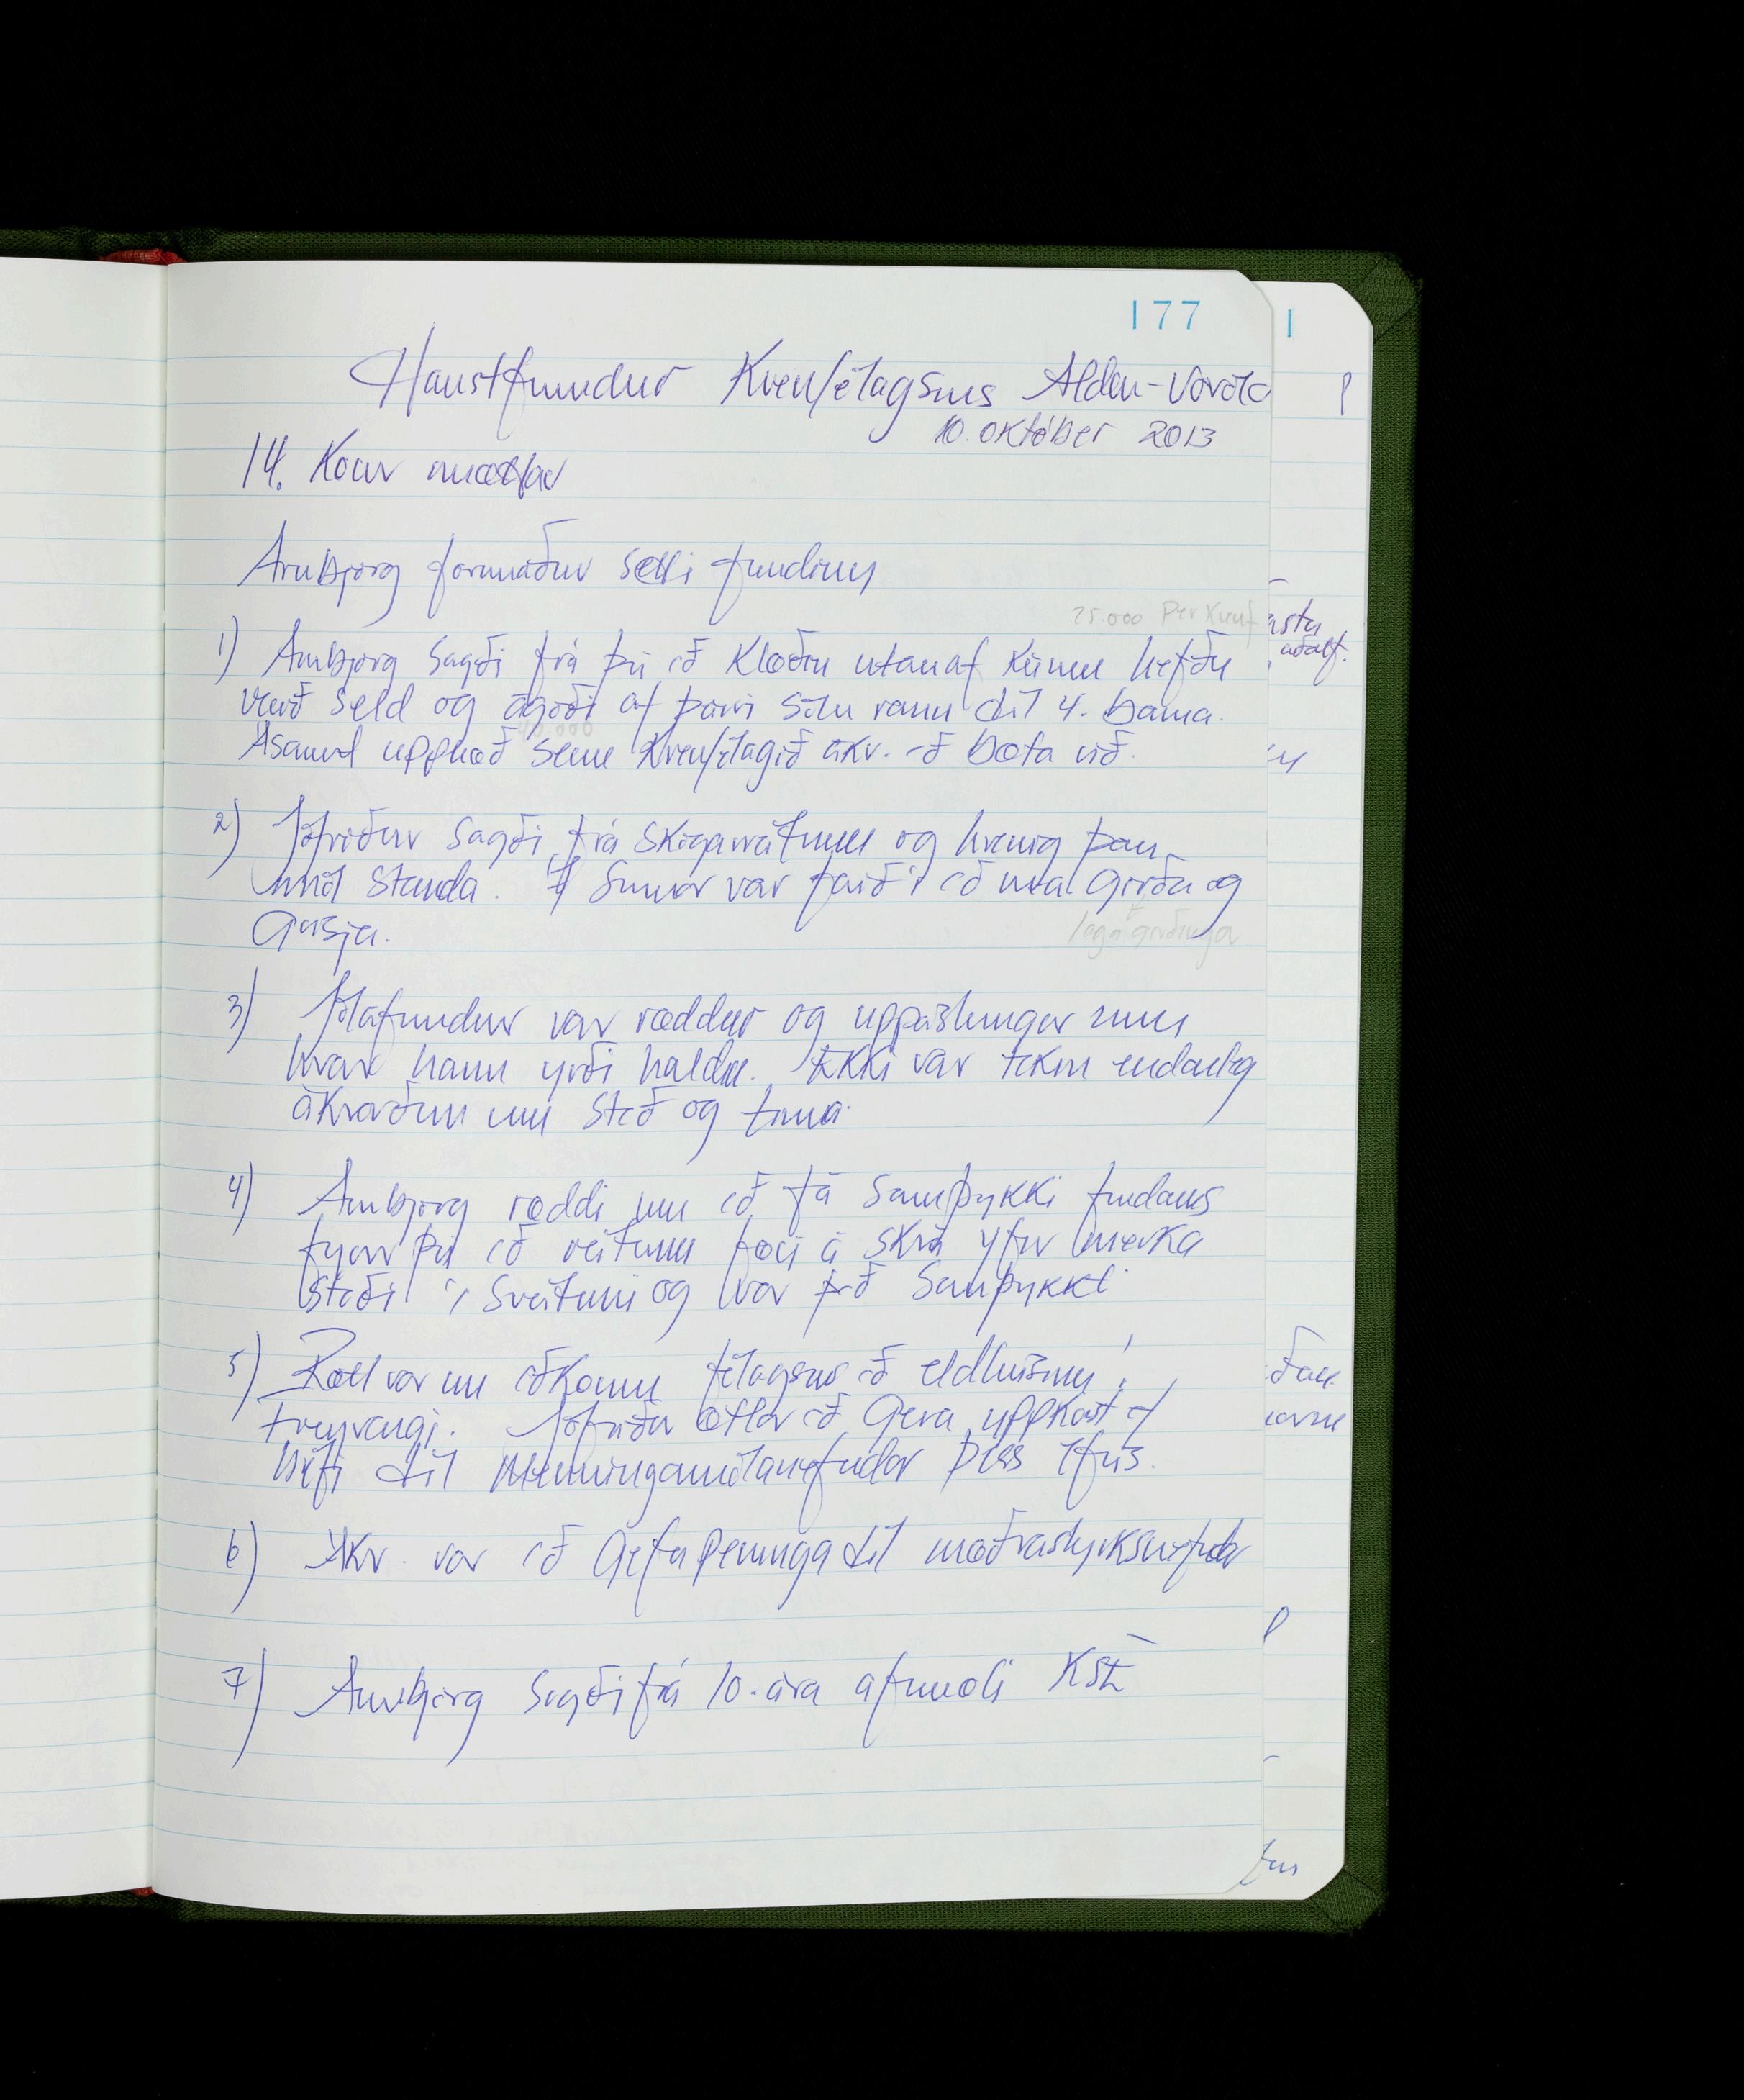 177
Haustfundur Kvenfélagsins Aldan-Voröld
10. október 2013
14. Konur mættar
Arnbjörg formaður setti fundinn
25.000 per Kvenf
1) Arnbjörg sagði frá því að klæðin utanaf kúnni hefðu
verið seld og ágóði af þeirri sölu rann til 4. barna.
40.000
Ásamt upphæð sem Kvenfélagið ákv. að bæta við.
2) Jófríður sagði frá skógarreitnum og hvernig þau
mál standa. Í sumar var farið í að girða og
laga girðinga
grisja.
3) Jólafundur var ræddur og uppástungur um
hvar hann yrði haldin. Ekki var tekin endanleg
ákvörðun um stað og tíma.
4) Arnbjörg ræddi um að fá samþykki fundains
fyrir því að reiturinn færi á skrá yfir merka
staði í sveitinni og var það samþykkt
5) Rætt var um aðkomu félagsins að eldhúsinu í
Freyvangi. Jófríður ætlar að gera uppkast af
bréfi til Menningarmálanefndar þess efnis.
6) Ákv. var að gefa peninga til mæðrastyrksnefndar
7) Arnbjörg sagði frá 10. ára afmæli